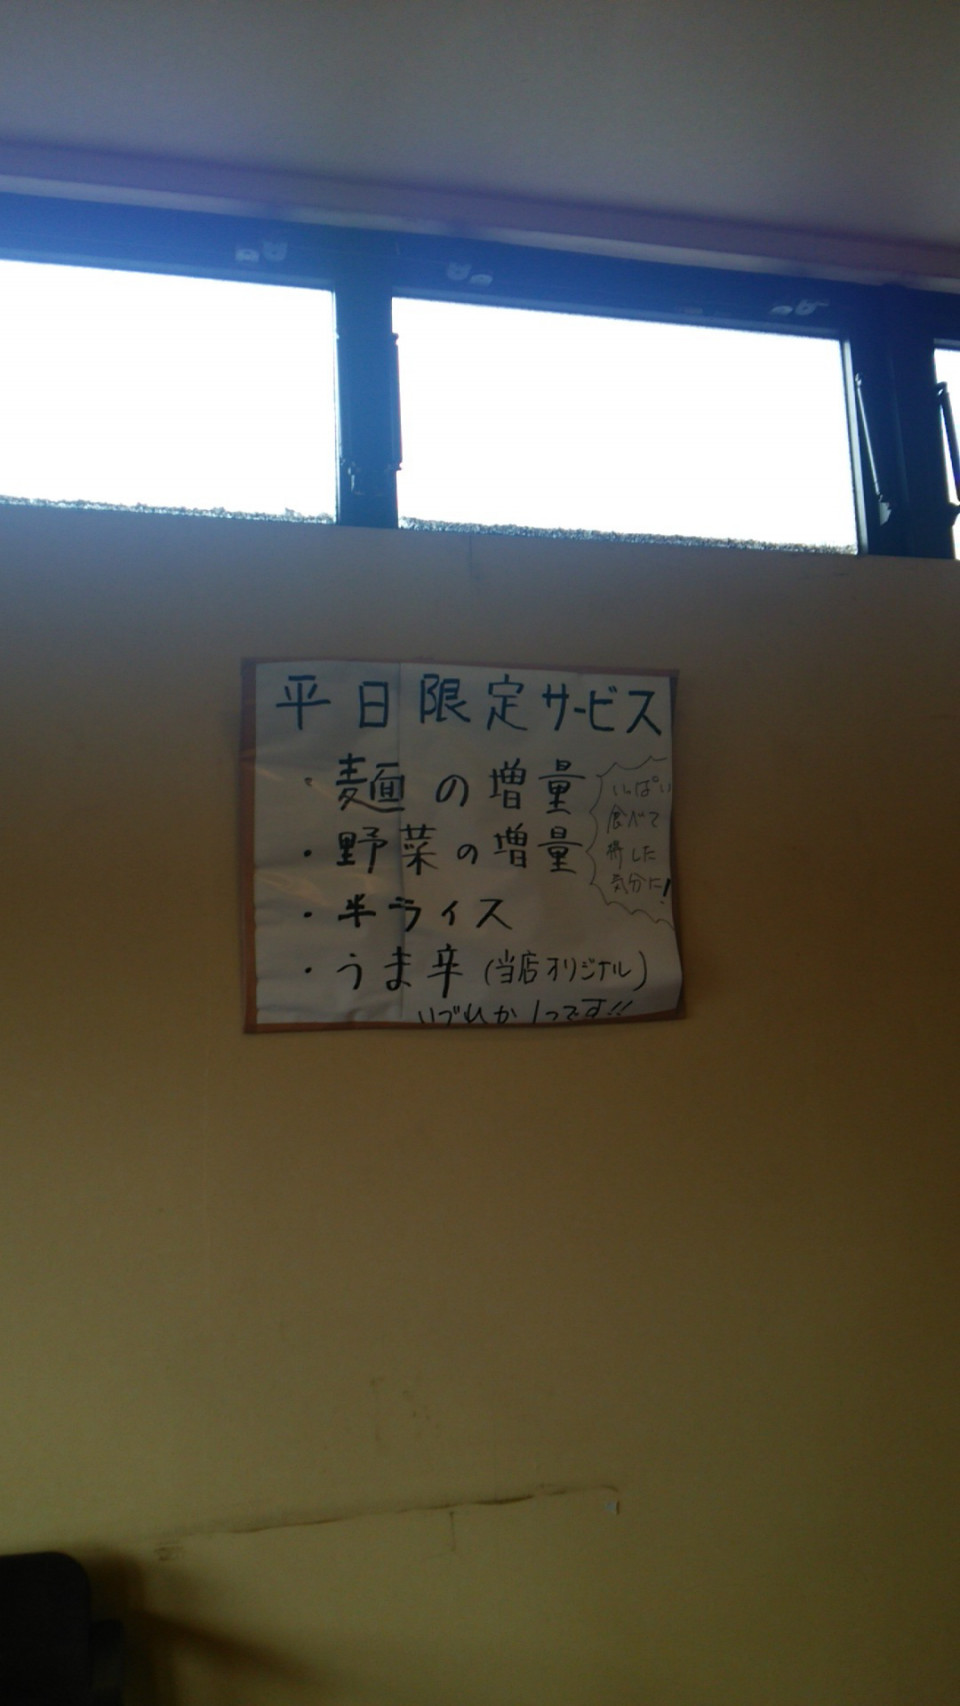 平日限定サービス
・麺の増量
・野菜の増量
・半ライス
・うま辛(当店オリジナル)
いづれか1つです!!
いっぱい
食べて
得した
気分に!